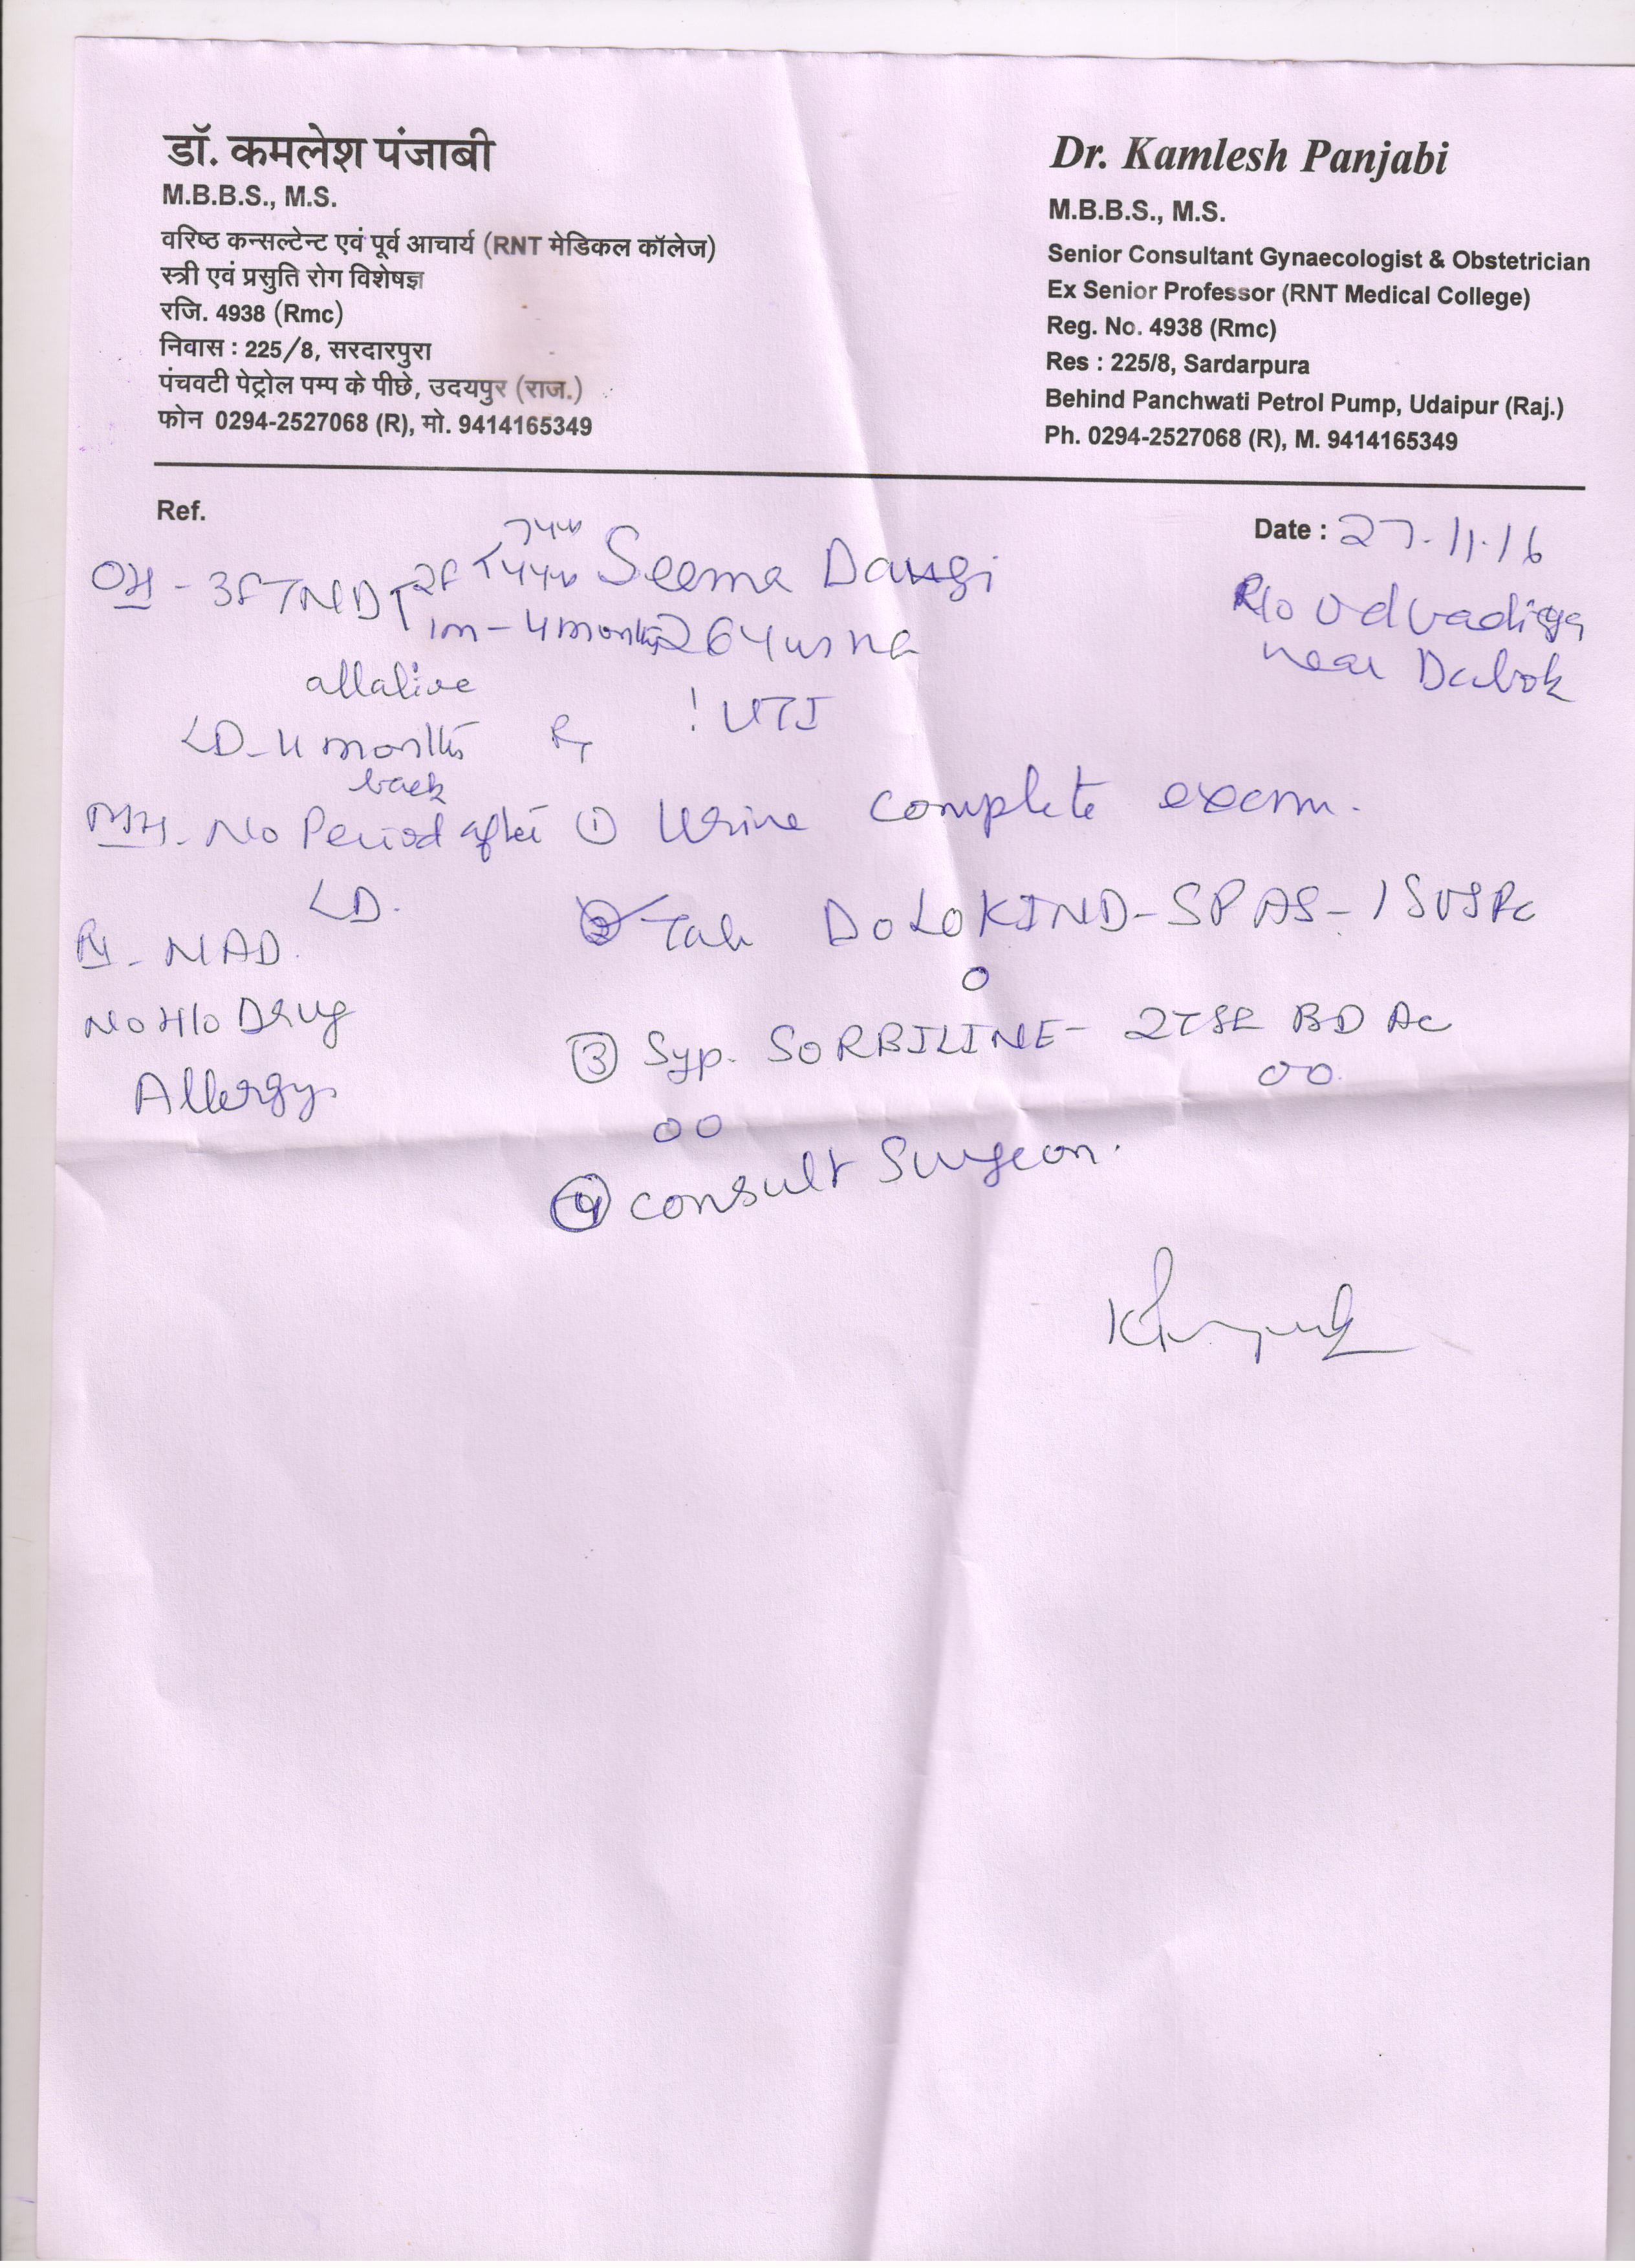 डॉ. कमलेश पंजाबी
M.B.B.S., M.S.
वरिष्ठ कन्सल्टेन्ट एवं पूर्व आचार्य (RNT मेडिकल कॉलेज)
स्त्री एवं प्रसुति रोग विशेषज्ञ
रजि. 4938 (Rmc)
निवास : 225/8, सरदारपुरा
पंचवटी पेट्रोल पम्प के पीछे, उदयपुर (राज.)
फोन 0294-2527068 (R), मो. 9414165349
Dr. Kamlesh Panjabi
M.B.B.S., M.S.
Senior Consultant Gynaecologist & Obstetrician
Ex Senior Professor (RNT Medical College)
Reg. No. 4938 (Rmc)
Res : 225/8, Sardarpura
Behind Panchwati Petrol Pump, Udaipur (Raj.)
Ph. 0294-2527068 (R), M. 9414165349
Ref.
Date : 27.11.16
Seema Dangi
R/o Udvadiya
near Dabok
OH - 3FTND 2F
1m - 4 months
all alive
LD - 4 months
back
MH - No Period after
LD.
PH - NAD.
No H/o Drug
Allergy.
! UTI
① Urine complete exam.
② Tab DOLOKIND-SPAS - 1 SOS PC
③ Syp. SORBILINE - 2TSF BD AC
④ Consult Surgeon.